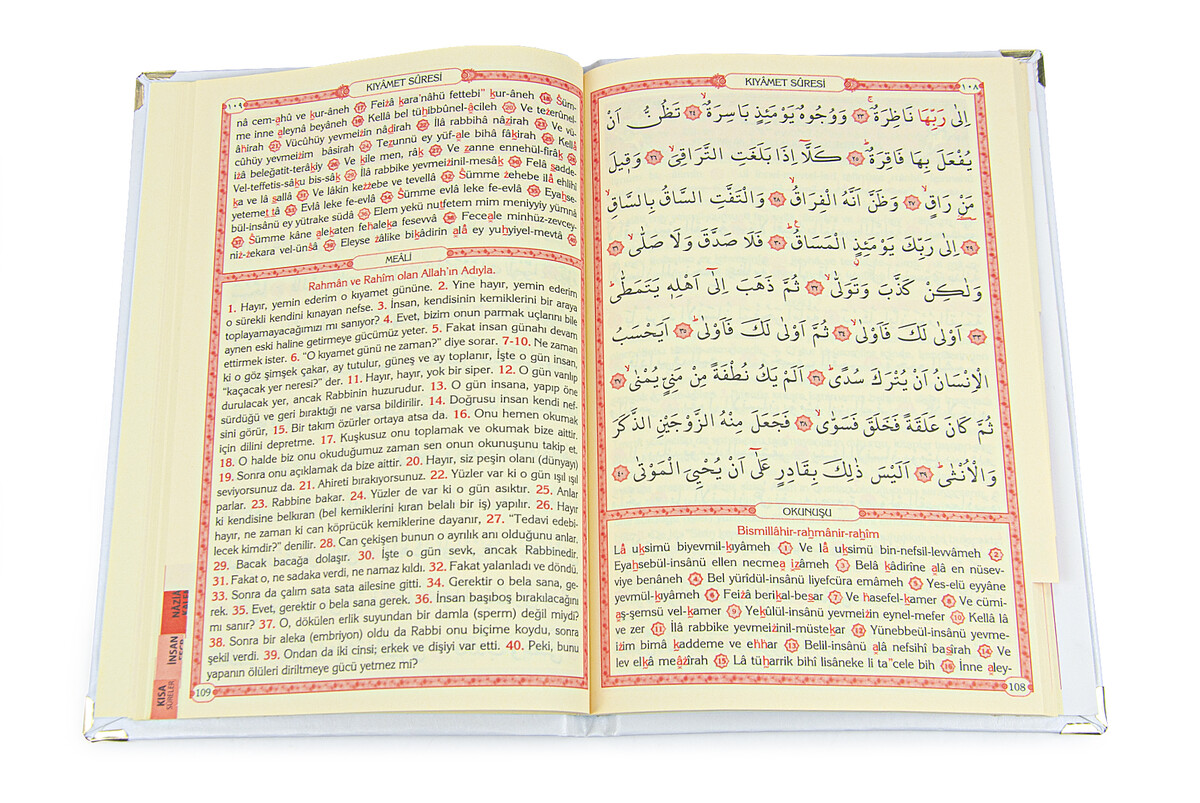 KIYÂMET SÛRESİ
١٠٨
اِلٰى رَبِّهَا نَاظِرَةٌۚ ﴿٢٣﴾ وَوُجُوهٌ يَوْمَئِذٍ بَاسِرَةٌۙ ﴿٢٤﴾ تَظُنُّ اَنْ
يُفْعَلَ بِهَا فَاقِرَةٌۜ ﴿٢٥﴾ كَلَّٓا اِذَا بَلَغَتِ التَّرَاقِيَۙ ﴿٢٦﴾ وَق۪يلَ
مَنْ رَاقٍۙ ﴿٢٧﴾ وَظَنَّ اَنَّهُ الْفِرَاقُۙ ﴿٢٨﴾ وَالْتَفَّتِ السَّاقُ بِالسَّاقِۙ
﴿٢٩﴾ اِلٰى رَبِّكَ يَوْمَئِذٍ الْمَسَاقُۜ ﴿٣٠﴾ فَلَا صَدَّقَ وَلَا صَلّٰىۙ ﴿٣١﴾
وَلٰكِنْ كَذَّبَ وَتَوَلّٰىۙ ﴿٣٢﴾ ثُمَّ ذَهَبَ اِلٰٓى اَهْلِه۪ يَتَمَطّٰىۜ
﴿٣٣﴾ اَوْلٰى لَكَ فَاَوْلٰىۙ ﴿٣٤﴾ ثُمَّ اَوْلٰى لَكَ فَاَوْلٰىۜ ﴿٣٥﴾ اَيَحْسَبُ
الْاِنْسَانُ اَنْ يُتْرَكَ سُدًىۜ ﴿٣٦﴾ اَلَمْ يَكُ نُطْفَةً مِنْ مَنِيٍّ يُمْنٰىۙ ﴿٣٧﴾
ثُمَّ كَانَ عَلَقَةً فَخَلَقَ فَسَوّٰىۙ ﴿٣٨﴾ فَجَعَلَ مِنْهُ الزَّوْجَيْنِ الذَّكَرَ
وَالْاُنْثٰىۜ ﴿٣٩﴾ اَلَيْسَ ذٰلِكَ بِقَادِرٍ عَلٰٓى اَنْ يُحْيِيَ الْمَوْتٰى ﴿٤٠﴾
OKUNUŞU
Bismillâhir-rahmânir-rahîm
Lâ uksimü biyevmil-kıyâmeh (1) Ve lâ uksimü bin-nefsil-levvâmeh (2)
Eyahsebül-insânü ellen necmea izâmeh (3) Belâ kâdirîne alâ en nüsev-
viye benâneh (4) Bel yürîdül-insânü liyefcüra emâmeh (5) Yes-elü eyyâne
yevmül-kıyâmeh (6) Feizâ berikal-besar (7) Ve hasefel-kamer (8) Ve cümi-
aş-şemsü vel-kamer (9) Yekûlül-insânü yevmeizin eynel-mefer (10) Kellâ lâ
ve zer (11) İlâ rabbike yevmeizinil-müstekar (12) Yünebbeül-insânü yevme-
izim bimâ kaddeme ve ehhar (13) Belil-insânü alâ nefsihî basîrah (14) Ve
lev elkâ meâzîrah (15) Lâ tüharrik bihî lisâneke li ta"cele bih (16) İnne aley-
108
KIYÂMET SÛRESİ
١٠٩
nâ cem-ahû ve kur-âneh (17) Feizâ kara'nâhü fettebi" kur-âneh (18) Süm-
me inne aleynâ beyâneh (19) Kellâ bel tühıbbûnel-âcileh (20) Ve tezerûnel-
âhirah (21) Vücûhüy yevmeizin nâdirah (22) İlâ rabbihâ nâzirah (23) Ve vü-
cûhüy yevmeizim bâsirah (24) Tezunnü ey yüf-ale bihâ fâkirah (25) Kellâ
izâ beleğatit-terâkiy (26) Ve kîle men, râk (27) Ve zanne ennehül-firâk (28)
Vel-teffetis-sâku bis-sâk (29) İlâ rabbike yevmeizinil-mesâk (30) Felâ sadde-
ka ve lâ sallâ (31) Ve lâkin kezzebe ve tevellâ (32) Sümme zehebe ilâ ehlihî
yetemet tâ (33) Evlâ leke fe-evlâ (34) Sümme evlâ leke fe-evlâ (35) Eyahse-
bül-insânü ey yütrake südâ (36) Elem yekü nutfetem mim meniyyiy yümnâ
(37) Sümme kâne alekaten fehaleka fesevvâ (38) Feceale minhüz-zevcey-
niz-zekara vel-ünsâ (39) Eleyse zâlike bikâdirin alâ ey yuhyiyel-mevtâ (40)
MEÂLİ
Rahmân ve Rahîm olan Allah'ın Adıyla.
1. Hayır, yemin ederim o kıyamet gününe. 2. Yine hayır, yemin ederim
o sürekli kendini kınayan nefse. 3. İnsan, kendisinin kemiklerini bir araya
toplayamayacağımızı mı sanıyor? 4. Evet, bizim onun parmak uçlarını bile
aynen eski haline getirmeye gücümüz yeter. 5. Fakat insan günahı devam
ettirmek ister. 6. "O kıyamet günü ne zaman?" diye sorar. 7-10. Ne zaman
ki o göz şimşek çakar, ay tutulur, güneş ve ay toplanır, İşte o gün insan,
"kaçacak yer neresi?" der. 11. Hayır, hayır, yok bir siper. 12. O gün vanlıp
durulacak yer, ancak Rabbinin huzurudur. 13. O gün insana, yapıp öne
sürdüğü ve geri bıraktığı ne varsa bildirilir. 14. Doğrusu insan kendi nef-
sini görür, 15. Bir takım özürler ortaya atsa da. 16. Onu hemen okumak
için dilini depretme. 17. Kuşkusuz onu toplamak ve okumak bize aittir.
18. O halde biz onu okuduğumuz zaman sen onun okunuşunu takip et.
19. Sonra onu açıklamak da bize aittir. 20. Hayır, siz peşin olanı (dünyayı)
seviyorsunuz da. 21. Ahireti bırakıyorsunuz. 22. Yüzler var ki o gün ışıl ışıl
parlar. 23. Rabbine bakar. 24. Yüzler de var ki o gün asıktır. 25. Anlar
ki kendisine belkıran (bel kemiklerini kıran belalı bir iş) yapılır. 26. Hayır
hayır, ne zaman ki can köprücük kemiklerine dayanır, 27. "Tedavi edebi-
lecek kimdir?" denilir. 28. Can çekişen bunun o ayrılık anı olduğunu anlar.
29. Bacak bacağa dolaşır. 30. İşte o gün sevk, ancak Rabbinedir.
31. Fakat o, ne sadaka verdi, ne namaz kıldı. 32. Fakat yalanladı ve döndü.
33. Sonra da çalım sata sata ailesine gitti. 34. Gerektir o bela sana, ge-
rek. 35. Evet, gerektir o bela sana gerek. 36. İnsan başıboş bırakılacağını
mı sanır? 37. O, dökülen erlik suyundan bir damla (sperm) değil miydi?
38. Sonra bir aleka (embriyon) oldu da Rabbi onu biçime koydu, sonra
şekil verdi. 39. Ondan da iki cinsi; erkek ve dişiyi var etti. 40. Peki, bunu
yapanın ölüleri diriltmeye gücü yetmez mi?
109
NÂZİA
İNSAN
KISA
SÛRELER